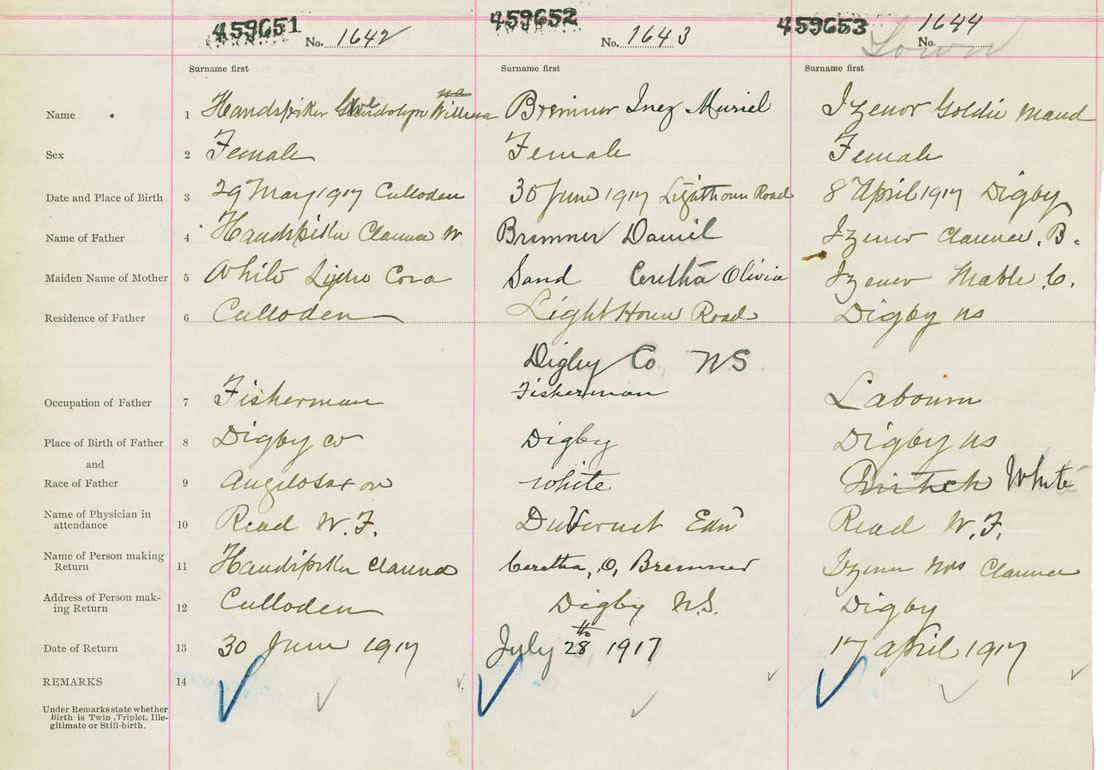 459651 No. 1642 459652 No. 1643 459653 1644 No. Town
Surname first Surname first Surname first
Name 1 Handspiker Gwendolyn Willena na Bremner Inez Muriel Izenor Goldie Maud
Sex 2 Female Female Female
Date and Place of Birth 3 29 May 1917 Culloden 30 June 1917 Lighthouse Road 8 April 1917 Digby
Name of Father 4 Handspiker Clarence W Bremner Daniel Izenor Clarence. B.
Maiden Name of Mother 5 White Cora Sand Ceretha Olivia Izenor Mable C.
Residence of Father 6 Culloden Light House Road Digby ns
Digby Co NS
Occupation of Father 7 Fisherman Fisherman Labourer
Place of Birth of Father 8 Digby co Digby Digby ns
and
Race of Father 9 Anglosaxon White British White
Name of Physician in
attendance 10 Read W. F. DuVernet Edw Read W. F.
Name of Person making
Return 11 Handspiker Clarence Ceretha, O, Bremner Izenor Mrs Clarence
Address of Person mak-
ing Return 12 Culloden Digby N.S. Digby
Date of Return 13 30 June 1917 July 28th, 1917 17 April 1917
REMARKS 14
Under Remarks state whether
Birth is Twin, Triplet, Ille-
gitimate or Still-birth.